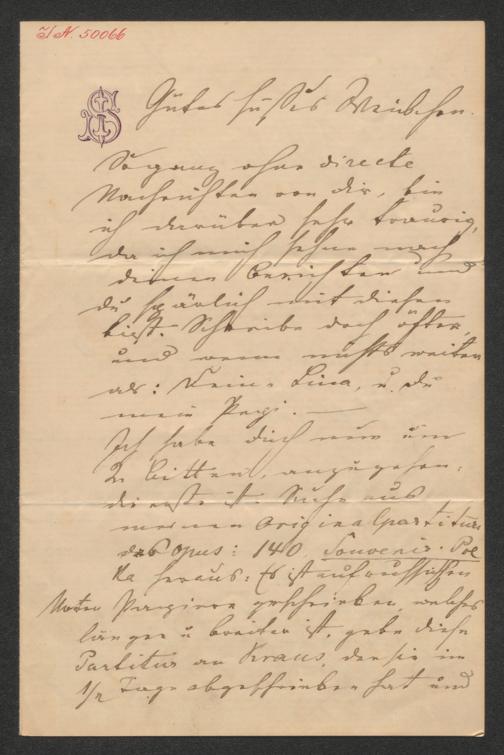 I.N. 50066
JS
Gutes süßes Weibchen.
So ganz ohne directe
Nachrichten von dir, bin
ich darüber sehr traurig,
da ich mich sehne nach
deinen Berichten und
du spärlich mit diesen
bist. Schreibe doch öfter
und wenn nichts weiter
als: Deine Lina, u. du
mein Pepi. —
Ich habe dich nun um
2 Bitten, anzugehen:
die erste ist. Suche aus
meinen Originalpartituren
das Opus: 140, Souvenir-Pol
ka heraus: Es ist auf russischen
Noten Papiere geschrieben, welches
länger u breiter ist, gebe diese
Partitur an Kraus, der sie in
1/2 Tage abgeschrieben hat und